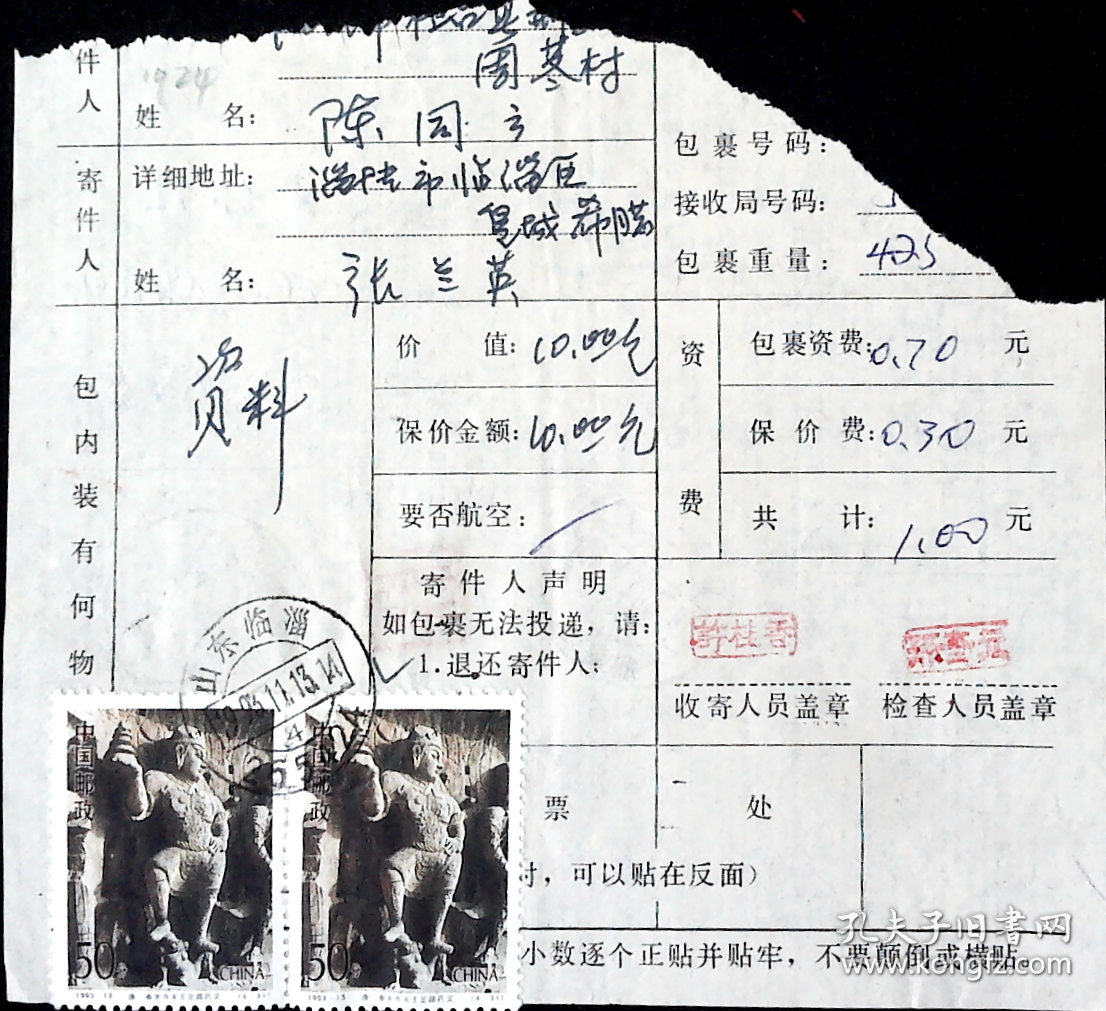 周茎村
件人
1924
姓 名: 陈同云
寄件人
详细地址: 淄博市临淄区
皇城
姓 名: 张兰英
包裹号码:
接收局号码:
包裹重量: 425
包内装有何物
资料
价 值: 10.00元
保价金额: 10.00元
要否航空:
资费
包裹资费: 0.70 元
保价费: 0.30 元
共 计: 1.00 元
寄件人声明
如包裹无法投递, 请:
1.退还寄件人;
许桂香
收寄人员盖章
检查人员盖章
山东临淄
1993.11.13.14
中国邮政
50
CHINA
1993-13
中国邮政
50
CHINA
1993-13
票 处
时, 可以贴在反面)
小数逐个正贴并贴牢, 不要颠倒或横贴。
孔夫子旧书网
www.kongfz.com